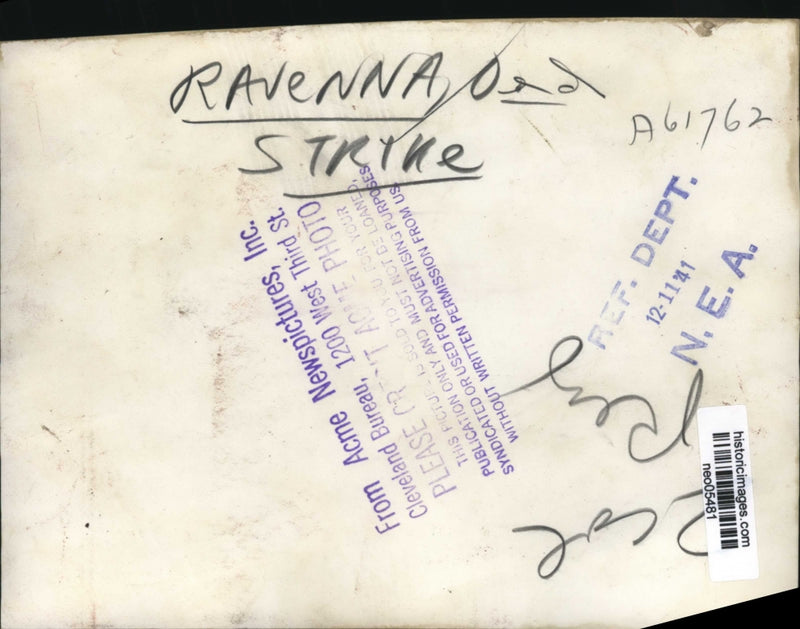 RAVENNA, Ord
STRIKE
A61762
From Acme Newspictures, Inc.
Cleveland Bureau, 1200 West Third St.
PLEASE CREDIT ACME PHOTO
THIS PICTURE IS SOLD TO YOU FOR YOUR
PUBLICATION ONLY AND MUST NOT BE LOANED,
SYNDICATED OR USED FOR ADVERTISING PURPOSES
WITHOUT WRITTEN PERMISSION FROM US.
REF. DEPT.
12-11 '41
N. E. A.
historicimages.com
neo05481